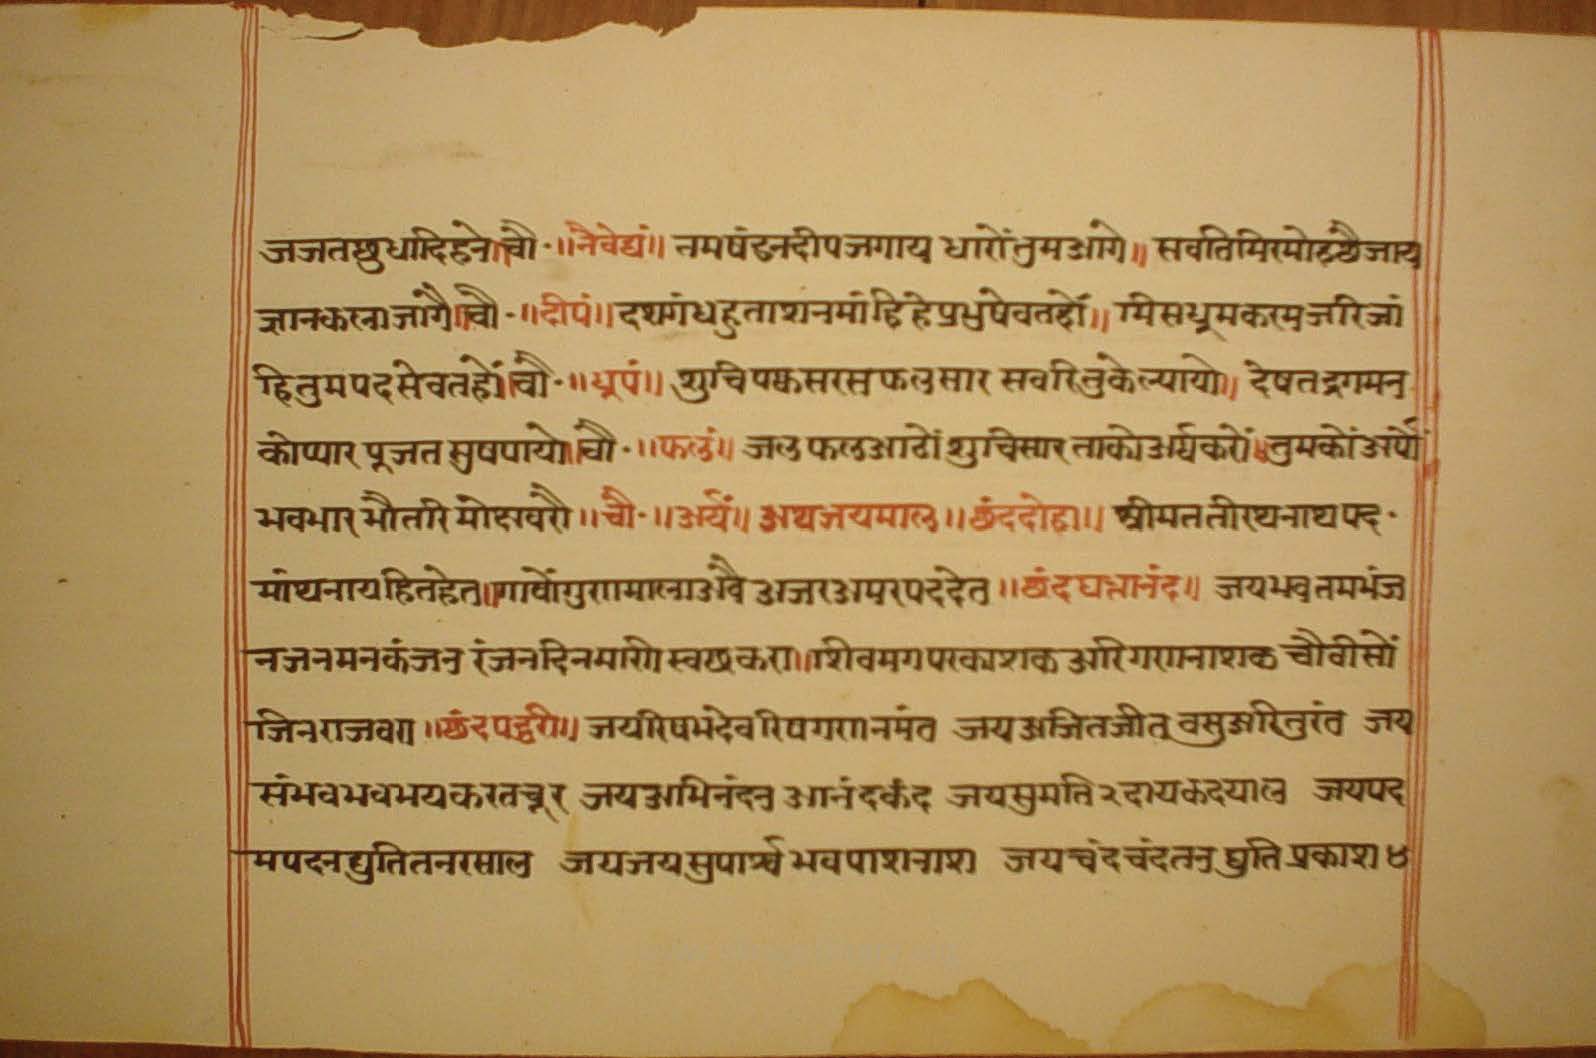 जजतछुधादिहने॥चौ·॥नैवेद्यं॥ नमषंढनदीपजगाय धारोंतुमआगे॥ सवतिमिरमोहछैजाय
ज्ञानकलाजागै॥चौ·॥दीपं॥ दशगंधहुताशनमांहि हेप्रभुषेवतहों॥ मिसधूमकरमजरिजां
हितुमपदसेवतहों॥चौ·॥धूपं॥ शुचिपक्कसरसफलसार सवरितुकेल्यायो॥ देषतद्रगमन
कोप्यार पूजतसुषपायो॥चौ·॥फलं॥ जलफलआठों शुचिसार ताकोअर्घकरों॥तुमकोंअर्पों
भवभार भौतरिमोदावरौ॥चौ·॥अर्घं॥ अथजयमाल॥छंददोहा॥ श्रीमततीरथनाथपद·
मांथनायहितहेत॥गावोंगुणमालाअवै अजरअमरपददेत॥छंदघत्तानंद॥ जयभवतमभंज
नजनमनकंजन रंजनदिनमाणि स्वछकरा॥शिवमगपरकाशक अरिगणनाशक चौवीसों
जिनराजवरा॥छंदपद्धरी॥ जयरिषभदेवरिषगणनमंत जयअजितजीत वसुअरितुरंत जय
संभवभवभयकरतचूर जयअभिनंदन आनंदकंद जयसुमति२दायकदयाल जयपद
मपदनद्युतितनरसाल जयजयसुपार्श्वभवपाशनाश जयचंदचंदतनद्युतिप्रकाश४